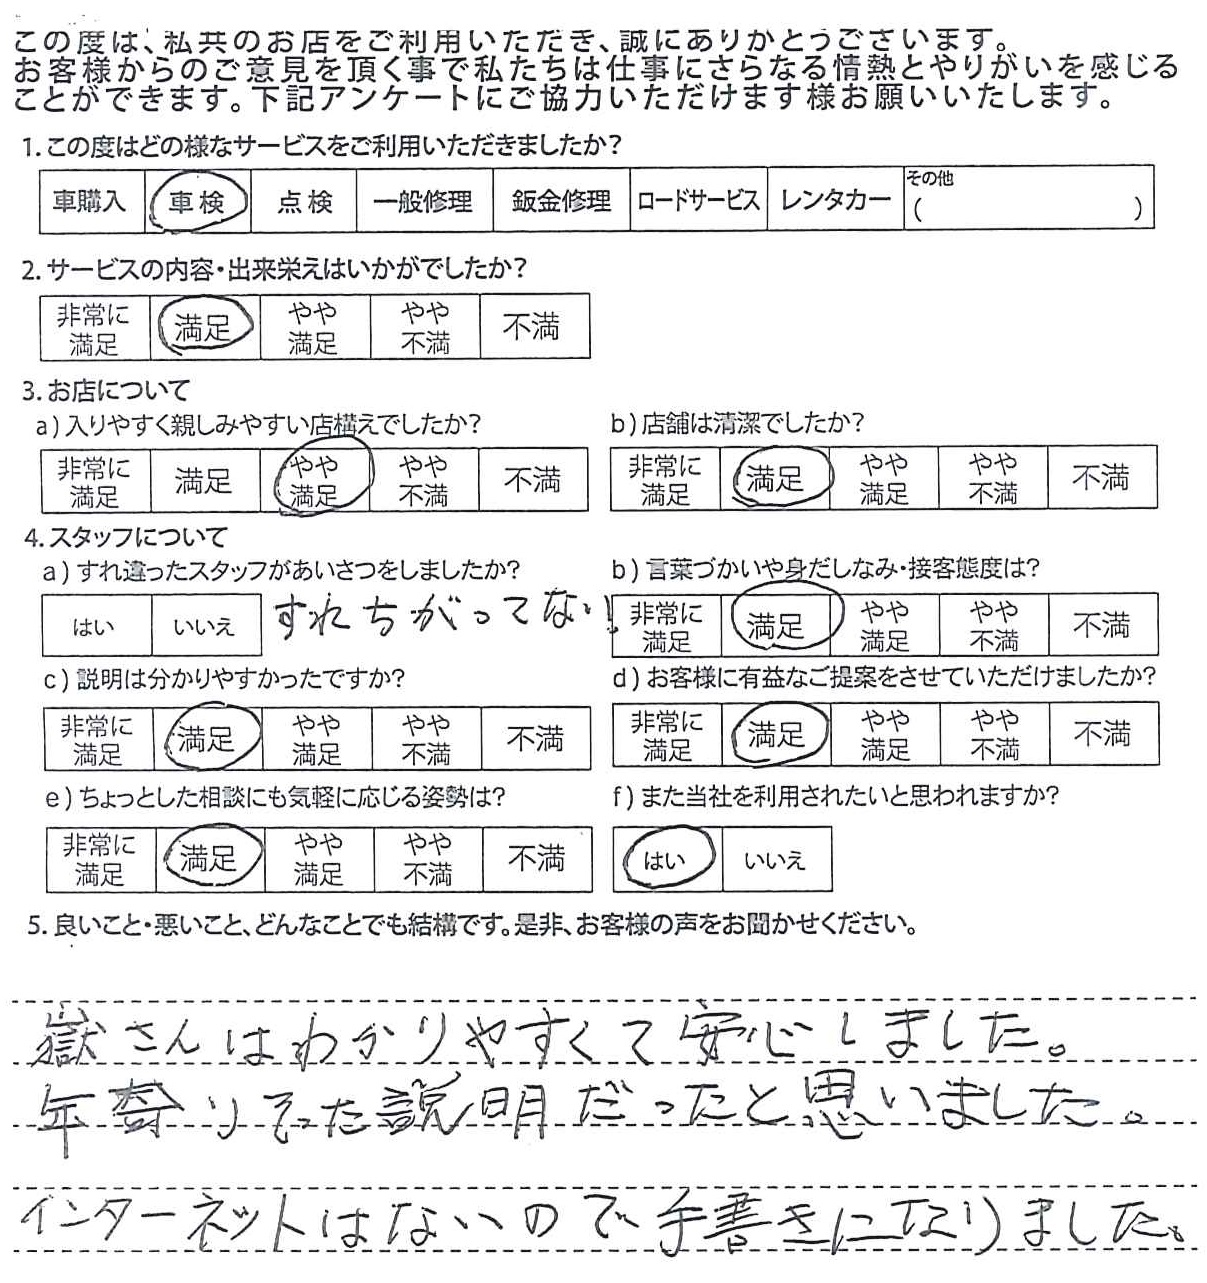 この度は、私共のお店をご利用いただき、誠にありがとうございます。
お客様からのご意見を頂く事で私たちは仕事にさらなる情熱とやりがいを感じる
ことができます。下記アンケートにご協力いただけます様お願いいたします。
1.この度はどの様なサービスをご利用いただきましたか？
車購入 車検 点検 一般修理 鈑金修理 ロードサービス レンタカー その他
( )
2.サービスの内容・出来栄えはいかがでしたか？
非常に満足 満足 やや満足 やや不満 不満
3.お店について
a)入りやすく親しみやすい店構えでしたか？
非常に満足 満足 やや満足 やや不満 不満
b)店舗は清潔でしたか？
非常に満足 満足 やや満足 やや不満 不満
4.スタッフについて
a)すれ違ったスタッフがあいさつをしましたか？
はい いいえ すれちがってない!
b)言葉づかいや身だしなみ・接客態度は？
非常に満足 満足 やや満足 やや不満 不満
c)説明は分かりやすかったですか？
非常に満足 満足 やや満足 やや不満 不満
d)お客様に有益なご提案をさせていただけましたか？
非常に満足 満足 やや満足 やや不満 不満
e)ちょっとした相談にも気軽に応じる姿勢は？
非常に満足 満足 やや満足 やや不満 不満
f)また当社を利用されたいと思われますか？
はい いいえ
5.良いこと・悪いこと、どんなことでも結構です。是非、お客様の声をお聞かせください。
嶽さんはわかりやすくて安心しました。
年寄りそった説明だったと思いました。
インターネットはないので手書きになりました。